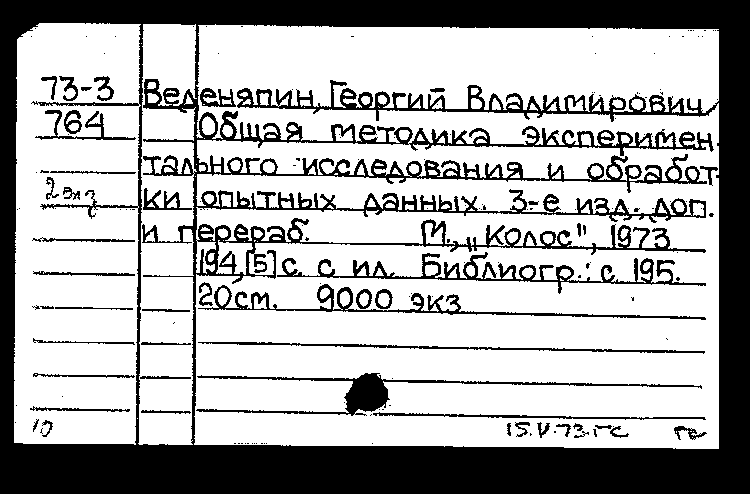 73-3 Веденяпин, Георгий Владимирович
764 Общая методика эксперимен-
тального исследования и обработ-
2 экз ки опытных данных. 3-е изд., доп.
и перераб. М., „Колос", 1973
194, [5] с. с ил. Библиогр.: с 195.
20 см. 9000 экз
10 15.V.73.ГС